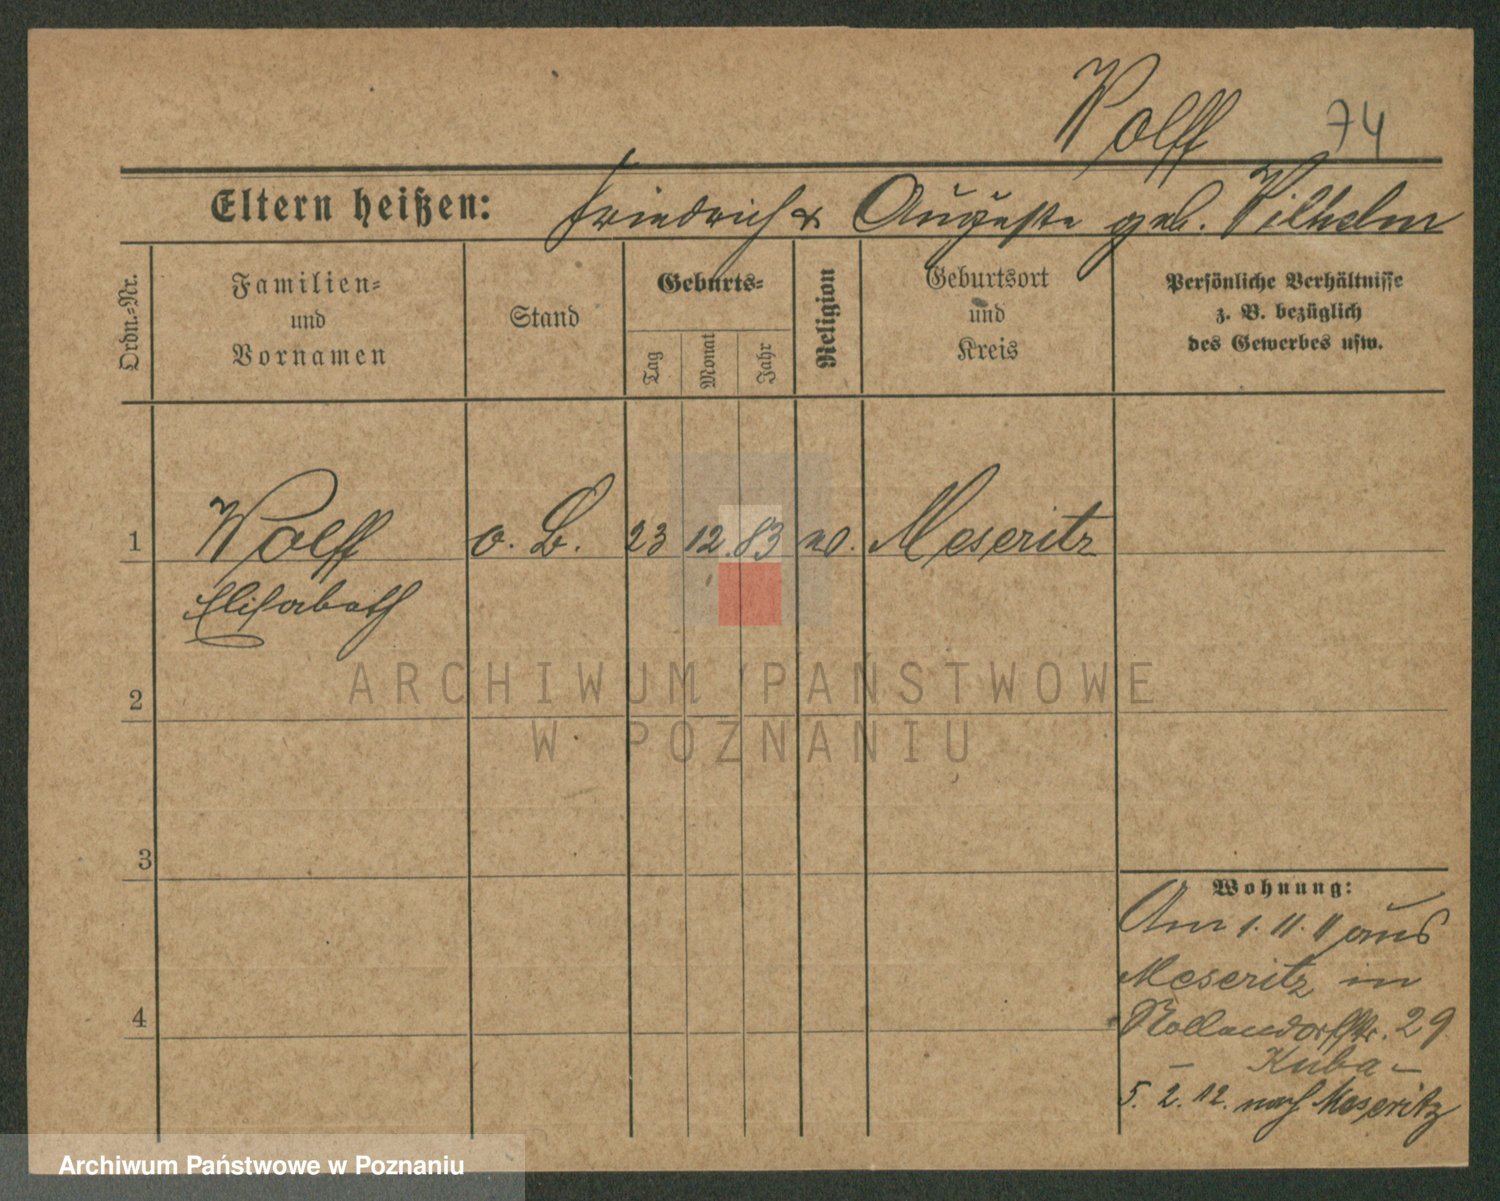 Wolff 74
Eltern heißen: Friedrich & Auguste geb. Wilhelm
Ordn.-Nr.
Familien-
und
Vornamen
Stand
Geburts-
Tag
Monat
Jahr
Religion
Geburtsort
und
Kreis
Persönliche Verhältnisse
z. B. bezüglich
des Gewerbes usw.
1 Wolff o. B. 23 12. 83 Meseritz
Elisabeth
2
3
4
Wohnung:
Am 1. 11. 11 aus
Meseritz in
Rollendorfstr. 29
- Kuba -
5. 2. 12. nach Meseritz
ARCHIWUM PAŃSTWOWE
W POZNANIU
Archiwum Państwowe w Poznaniu